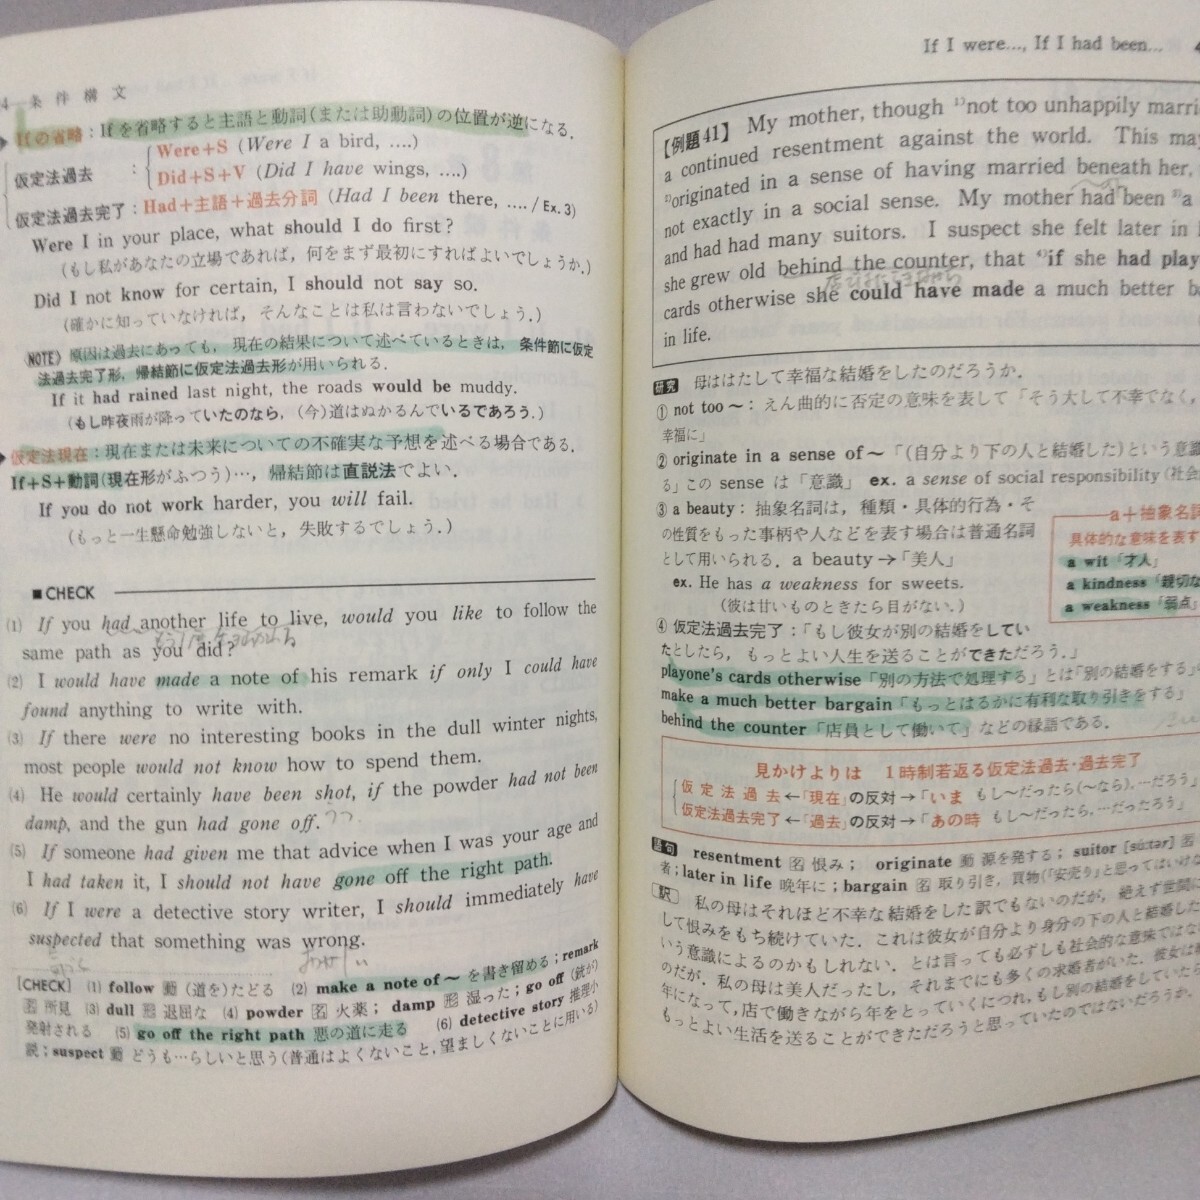 4 条件構文
Ifの省略：Ifを省略すると主語と動詞(または助動詞)の位置が逆になる．
仮定法過去 ： Were+S (Were I a bird, ….)
Did+S+V (Did I have wings, ….)
仮定法過去完了：Had+主語+過去分詞 (Had I been there, …. / Ex. 3)
Were I in your place, what should I do first?
(もし私があなたの立場であれば，何をまず最初にすればよいでしょうか．)
Did I not know for certain, I should not say so.
(確かに知っていなければ，そんなことは私は言わないでしょう．)
NOTE》 原因は過去にあっても，現在の結果について述べているときは，条件節に仮定
法過去完了形，帰結節に仮定法過去形が用いられる．
If it had rained last night, the roads would be muddy.
(もし昨夜雨が降っていたのなら，(今)道はぬかるんでいるであろう．)
仮定法現在：現在または未来についての不確実な予想を述べる場合である．
If+S+動詞(現在形がふつう)…，帰結節は直説法でよい．
If you do not work harder, you will fail.
(もっと一生懸命勉強しないと，失敗するでしょう．)
■CHECK
(1) If you had another life to live, would you like to follow the
same path as you did?
(2) I would have made a note of his remark if only I could have
found anything to write with.
(3) If there were no interesting books in the dull winter nights,
most people would not know how to spend them.
(4) He would certainly have been shot, if the powder had not been
damp, and the gun had gone off.
(5) If someone had given me that advice when I was your age and
I had taken it, I should not have gone off the right path.
(6) If I were a detective story writer, I should immediately have
suspected that something was wrong.
[CHECK] (1) follow 動 (道を)たどる (2) make a note of～ を書き留める；remark
名 所見 (3) dull 形 退屈な (4) powder 名 火薬；damp 形 湿った；go off (銃が)
発射される (5) go off the right path 悪の道に走る (6) detective story 推理小
説；suspect 動 どうも…らしいと思う(普通はよくないこと，望ましくないことに用いる)
If I were…, If I had been… 4
【例題41】 My mother, though 1)not too unhappily marri
a continued resentment against the world. This may
2)originated in a sense of having married beneath her,
not exactly in a social sense. My mother had been 3)a
and had had many suitors. I suspect she felt later in l
she grew old behind the counter, that 4)if she had play
cards otherwise she could have made a much better ba
in life.
研究 母ははたして幸福な結婚をしたのだろうか．
① not too～：えん曲的に否定の意味を表して「そう大して不幸でなく，
幸福に」
② originate in a sense of～「(自分より下の人と結婚した)という意識
る」この sense は「意識」 ex. a sense of social responsibility (社会
③ a beauty：抽象名詞は，種類・具体的行為・そ
の性質をもった事柄や人などを表す場合は普通名詞
として用いられる．a beauty→「美人」
ex. He has a weakness for sweets.
(彼は甘いものときたら目がない．)
a+抽象名詞
具体的な意味を表す
a wit「才人」
a kindness「親切な
a weakness「弱点」
④ 仮定法過去完了：「もし彼女が別の結婚をしてい
たとしたら，もっとよい人生を送ることができただろう．」
playone's cards otherwise「別の方法で処理する」とは「別の結婚をする」
make a much better bargain「もっとはるかに有利な取り引きをする」
behind the counter「店員として働いて」などの縁語である．
見かけよりは 1時制若返る仮定法過去・過去完了
仮定法過去←「現在」の反対→「いま もし～だったら(～なら)，…だろう」
仮定法過去完了←「過去」の反対→「あの時 もし～だったら，…だったろう」
語句 resentment 名 恨み； originate 動 源を発する；suitor [sú:tər] 名
者；later in life 晩年に；bargain 名 取り引き，買物(「安売り」と思ってはいけな
[訳] 私の母はそれほど不幸な結婚をした訳でもないのだが，絶えず世間に
して恨みをもち続けていた．これは彼女が自分より身分の下の人と結婚した
いう意識によるのかもしれない．とは言っても必ずしも社会的な意味ではな
のだが．私の母は美人だったし，それまでにも多くの求婚者がいた．彼女は
年になって，店で働きながら年をとっていくにつれ，もし別の結婚をしていたら
もっとよい生活を送ることができただろうと思っていたのではないだろうか．